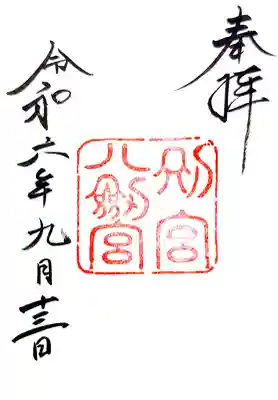 奉拝
別宮
八剣宮
令和六年九月十三日